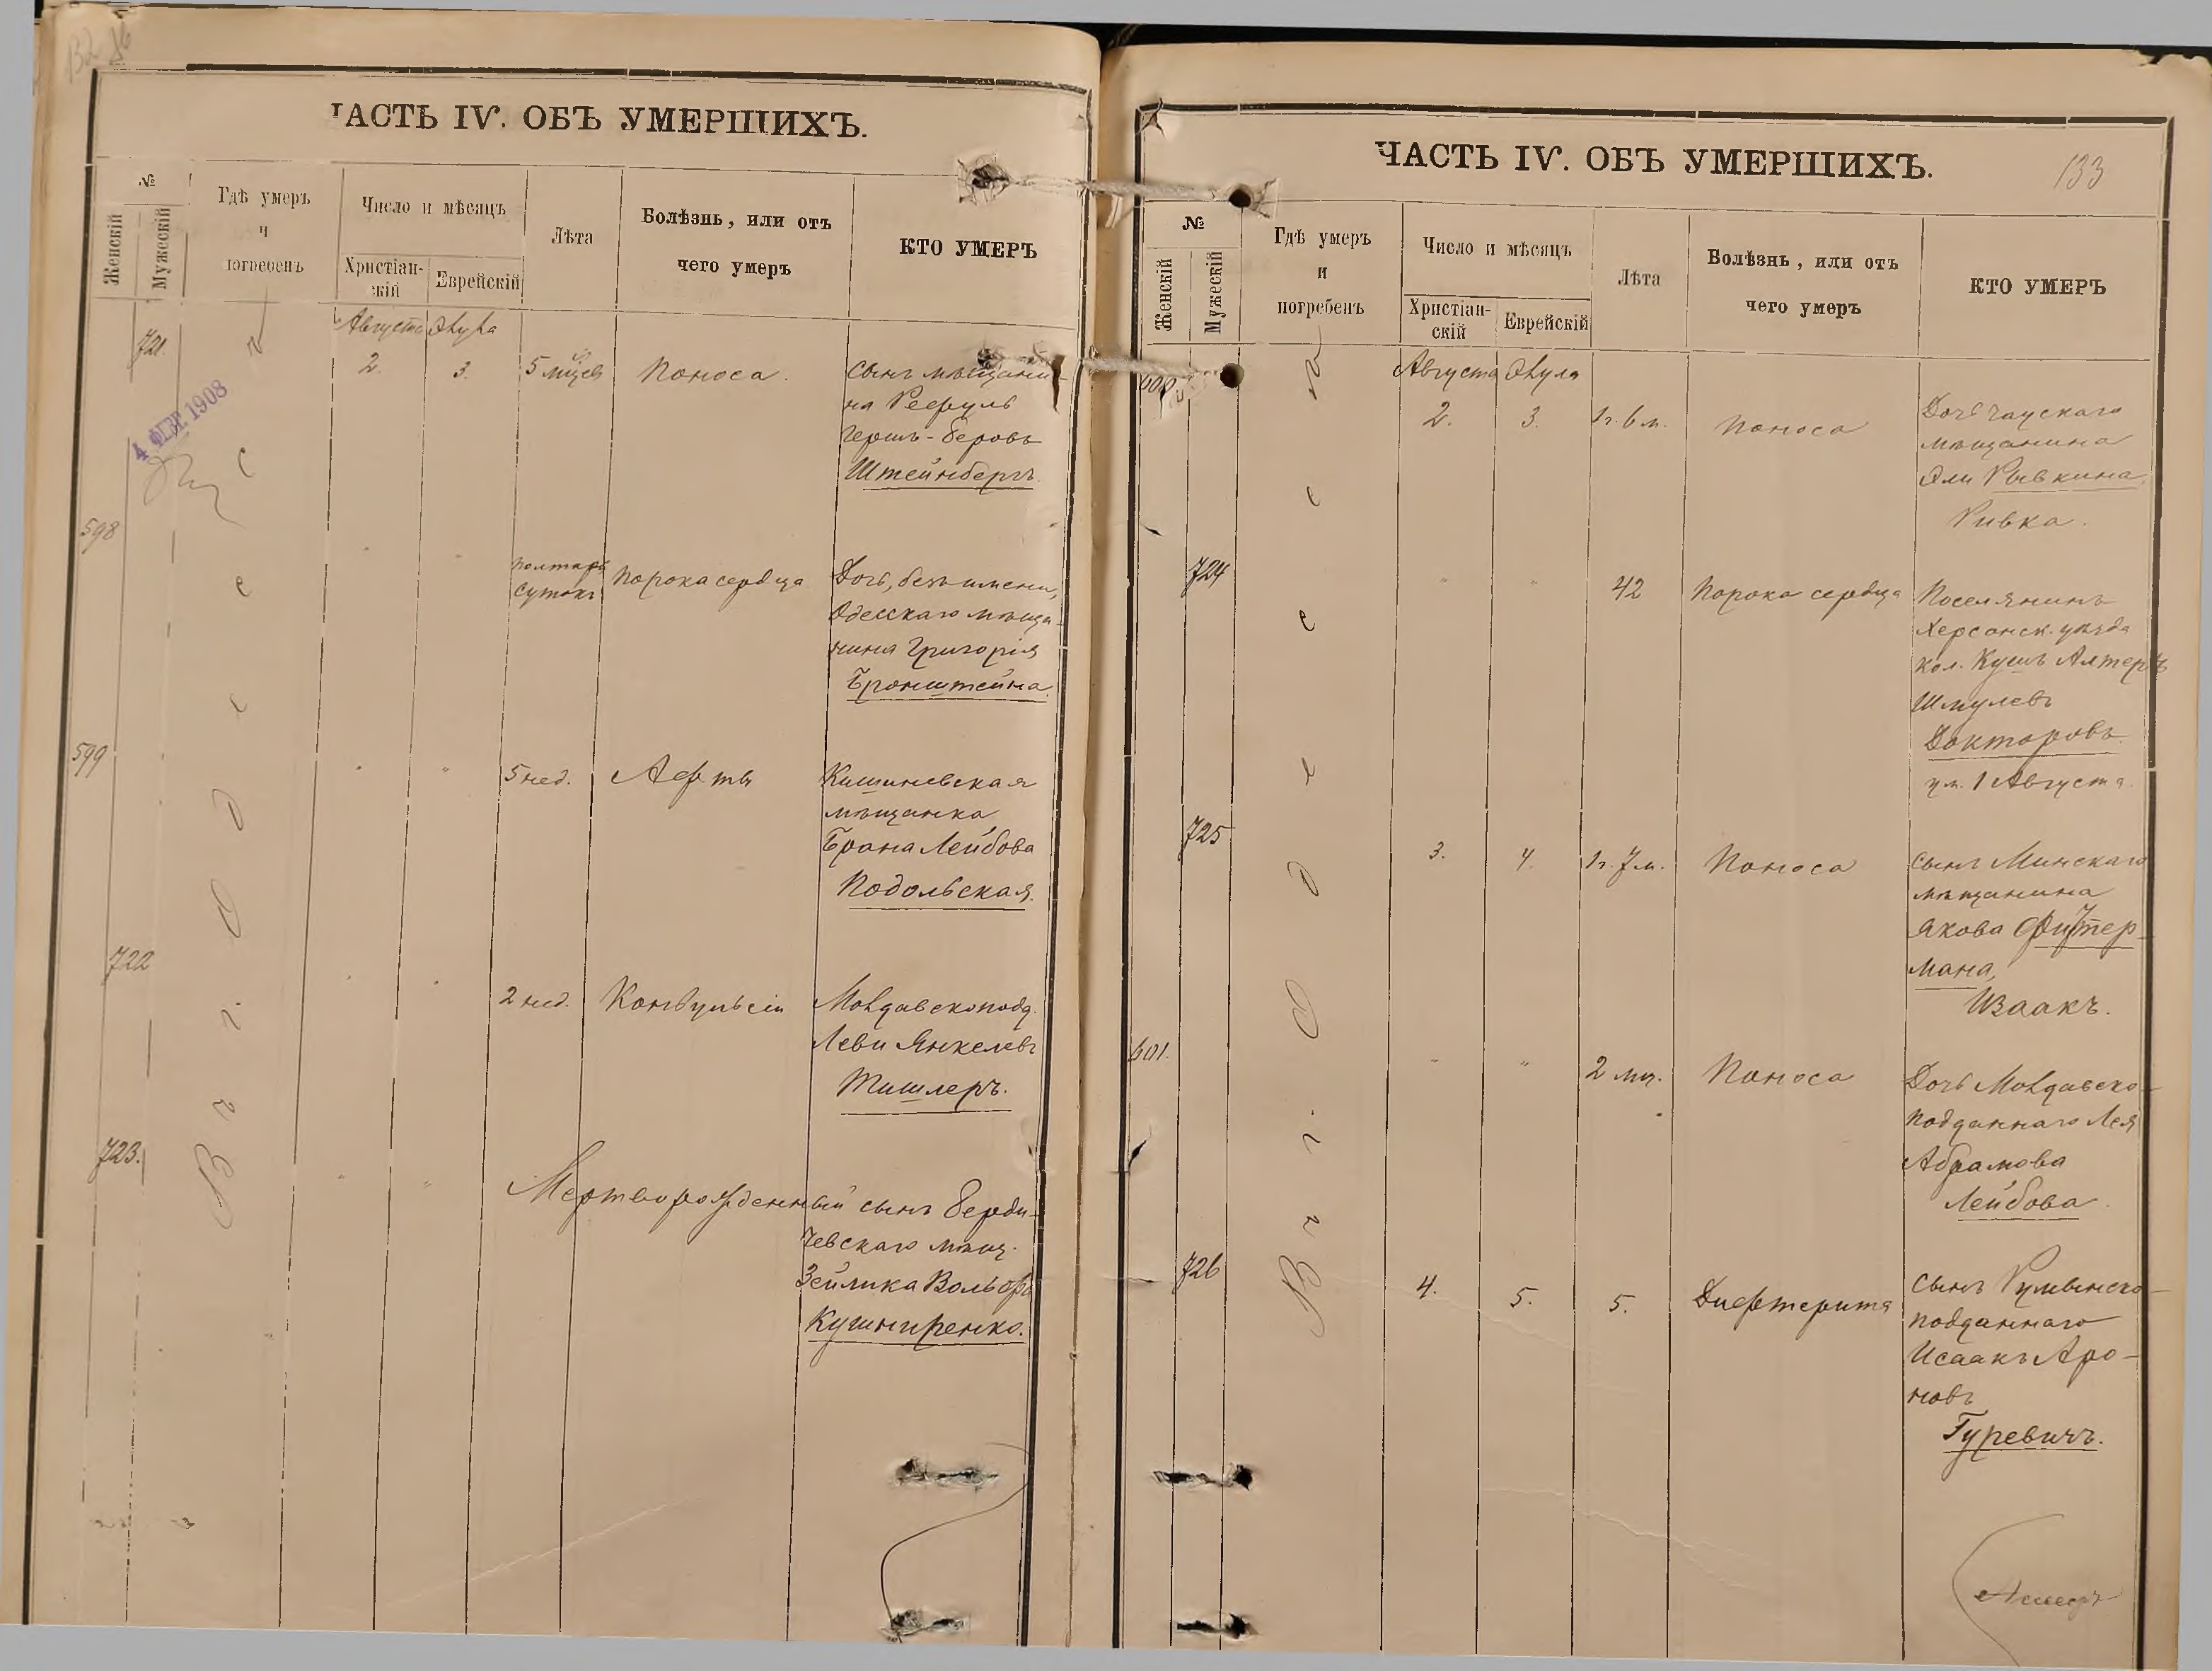 ЧАСТЬ IV. ОБЪ УМЕРШИХЪ.
№
Женскій
Мужескій
Гдѣ умеръ
и
погребенъ
Число и мѣсяцъ
Христіан-
скій
Еврейскій
Лѣта
Болѣзнь, или отъ
чего умеръ
КТО УМЕРЪ
Въ г. Одессѣ
4 ФЕВ. 1908
721.
Августа
2.
3.
5 мцев
Поноса.
сынъ мѣщани-
на Рефуль
Гершъ-Беровъ
Штейнбергъ.
598
"
"
полтары
сутокъ
Порока сердца
Дочь, безъ имени,
Одесскаго мѣща-
нина Григорія
Бронштейна.
599
"
"
5 нед.
Афты
Кишиневская
мѣщанка
Брана Лейбова
Подольская.
722
"
"
2 нед.
Конвульсіи
Молдавскоподд.
Леви Янкелевъ
Тишлеръ.
723.
"
"
Мертворожденный сынъ Берди-
чевскаго мѣщ.
Зейлика Вольфъ
Кушниренко.
ЧАСТЬ IV. ОБЪ УМЕРШИХЪ.
133
№
Женскій
Мужескій
Гдѣ умеръ
и
погребенъ
Число и мѣсяцъ
Христіан-
скій
Еврейскій
Лѣта
Болѣзнь, или отъ
чего умеръ
КТО УМЕРЪ
Въ г. Одессѣ
600.
Августа
2.
3.
1 г. 6 м.
Поноса
Дочь Чаускаго
мѣщанина
Эли Рывкина,
Ривка.
724
"
"
42
Порока сердца
Поселянинъ
Херсонск. уѣзда
кол. Алтеръ
Шмулевъ
Докторовъ.
ум. 1 Августа.
725
3.
4.
1 г. 7 м.
Поноса
сынъ Минскаго
мѣщанина
Якова Фитер-
мана,
Изаакъ.
601.
"
"
2 мц.
Поноса
Дочь Молдавско-
подданнаго Лея
Абрамова
Лейбова.
726
4.
5.
5.
Дифтерита
сынъ Румынско-
подданнаго
Исаакъ Аро-
новъ
Гуревичъ.